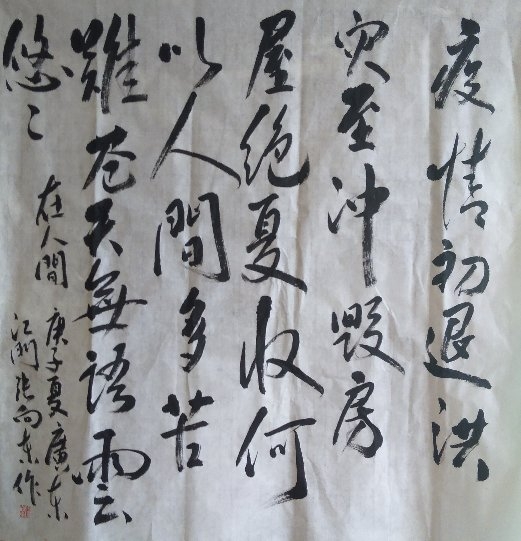 疫情初退洪
灾至冲毁房
屋绝夏收何
以人間多苦
難苍天無語雲
悠々
在人間
庚子夏廣东
江门张向东作